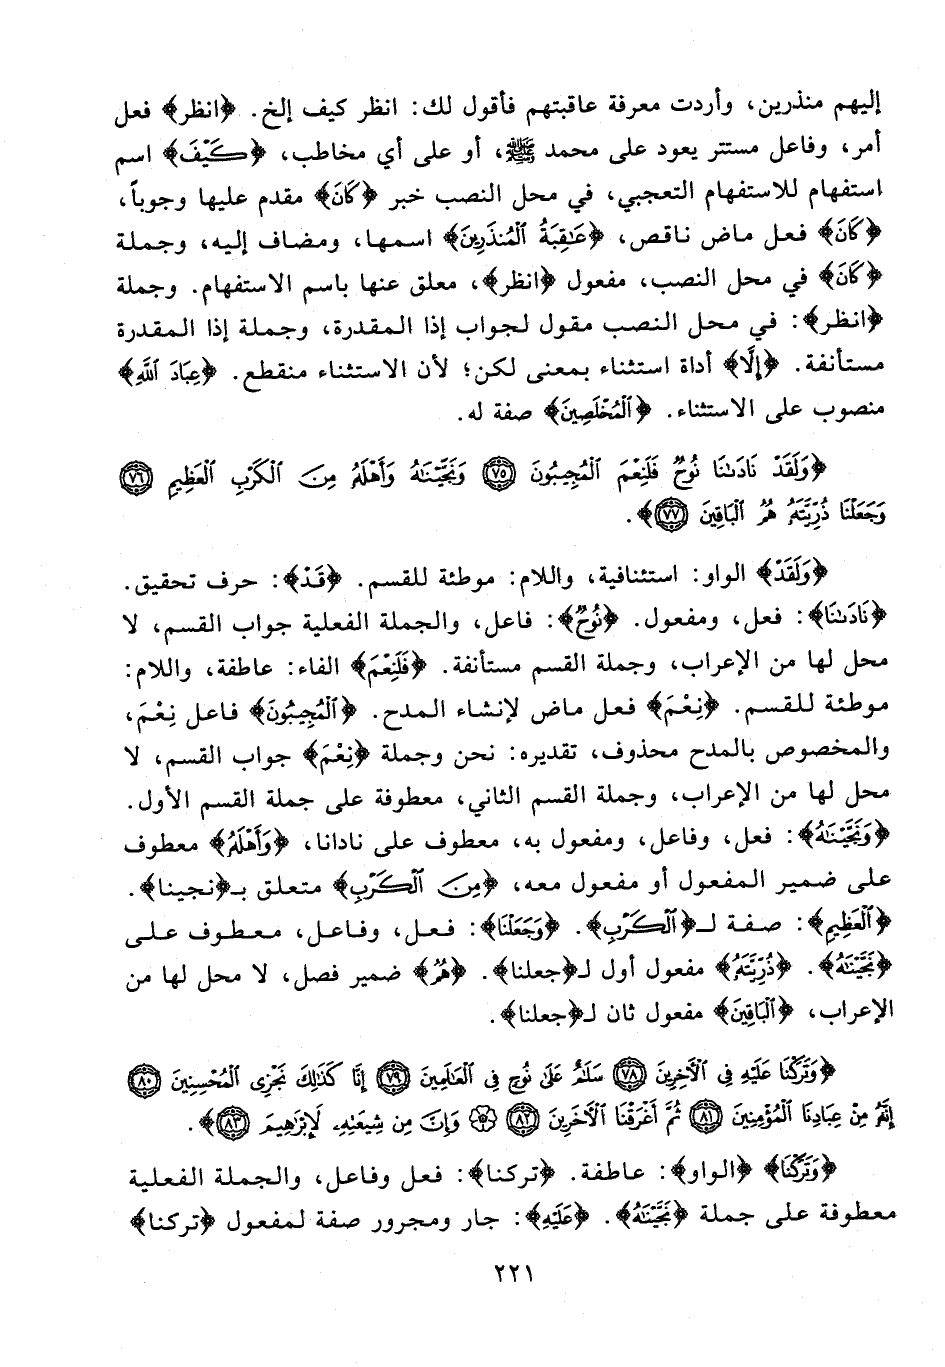 إليهم منذرين، وأردت معرفة عاقبتهم فأقول لك: انظر كيف إلخ. ﴿انظر﴾ فعل
أمر، وفاعل مستتر يعود على محمد ﷺ، أو على أي مخاطب، ﴿كَيْفَ﴾ اسم
استفهام للاستفهام التعجبي، في محل النصب خبر ﴿كَانَ﴾ مقدم عليها وجوباً،
﴿كَانَ﴾ فعل ماض ناقص، ﴿عَاقِبَةُ الْمُنذَرِينَ﴾ اسمها، ومضاف إليه، وجملة
﴿كَانَ﴾ في محل النصب، مفعول ﴿انظر﴾، معلق عنها باسم الاستفهام. وجملة
﴿انظر﴾: في محل النصب مقول لجواب إذا المقدرة، وجملة إذا المقدرة
مستأنفة. ﴿إِلَّا﴾ أداة استثناء بمعنى لكن؛ لأن الاستثناء منقطع. ﴿عِبَادَ اللَّهِ﴾
منصوب على الاستثناء. ﴿الْمُخْلَصِينَ﴾ صفة له.
﴿وَلَقَدْ نَادَىٰنَا نُوحٌ فَلَنِعْمَ الْمُجِيبُونَ ٧٥ وَنَجَّيْنَٰهُ وَأَهْلَهُ مِنَ الْكَرْبِ الْعَظِيمِ ٧٦
وَجَعَلْنَا ذُرِّيَّتَهُ هُمُ الْبَاقِينَ ٧٧﴾.
﴿وَلَقَدْ﴾ الواو: استئنافية، واللام: موطئة للقسم. ﴿قَدْ﴾: حرف تحقيق.
﴿نَادَىٰنَا﴾: فعل، ومفعول. ﴿نُوحٌ﴾: فاعل، والجملة الفعلية جواب القسم، لا
محل لها من الإعراب، وجملة القسم مستأنفة. ﴿فَلَنِعْمَ﴾ الفاء: عاطفة، واللام:
موطئة للقسم. ﴿نِعْمَ﴾ فعل ماض لإنشاء المدح. ﴿الْمُجِيبُونَ﴾ فاعل نِعْمَ،
والمخصوص بالمدح محذوف، تقديره: نحن وجملة ﴿نِعْمَ﴾ جواب القسم، لا
محل لها من الإعراب، وجملة القسم الثاني، معطوفة على جملة القسم الأول.
﴿وَنَجَّيْنَٰهُ﴾: فعل، وفاعل، ومفعول به، معطوف على نادانا، ﴿وَأَهْلَهُ﴾ معطوف
على ضمير المفعول أو مفعول معه، ﴿مِنَ الْكَرْبِ﴾ متعلق بـ﴿نجينا﴾.
﴿الْعَظِيمِ﴾: صفة لـ﴿الْكَرْبِ﴾. ﴿وَجَعَلْنَا﴾: فعل، وفاعل، معطوف على
﴿نَجَّيْنَٰهُ﴾. ﴿ذُرِّيَّتَهُ﴾ مفعول أول لـ﴿جعلنا﴾. ﴿هُمُ﴾ ضمير فصل، لا محل لها من
الإعراب، ﴿الْبَاقِينَ﴾ مفعول ثان لـ﴿جعلنا﴾.
﴿وَتَرَكْنَا عَلَيْهِ فِي الْآخِرِينَ ٧٨ سَلَامٌ عَلَىٰ نُوحٍ فِي الْعَالَمِينَ ٧٩ إِنَّا كَذَٰلِكَ نَجْزِي الْمُحْسِنِينَ ٨٠
إِنَّهُ مِنْ عِبَادِنَا الْمُؤْمِنِينَ ٨١ ثُمَّ أَغْرَقْنَا الْآخَرِينَ ٨٢ وَإِنَّ مِن شِيعَتِهِ لَإِبْرَاهِيمَ ٨٣﴾.
﴿وَتَرَكْنَا﴾ ﴿الواو﴾: عاطفة. ﴿تركنا﴾: فعل وفاعل، والجملة الفعلية
معطوفة على جملة ﴿نَجَّيْنَٰهُ﴾. ﴿عَلَيْهِ﴾: جار ومجرور صفة لمفعول ﴿تركنا﴾
٢٢١